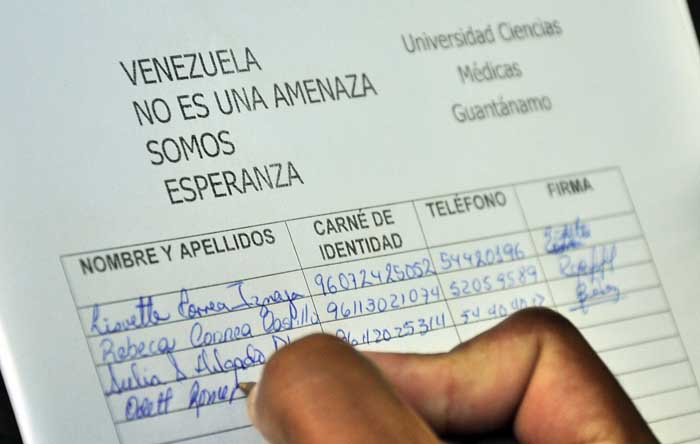 VENEZUELA
NO ES UNA AMENAZA
SOMOS
ESPERANZA
Universidad Ciencias
Médicas
Guantánamo
NOMBRE Y APELLIDOS
CARNÉ DE
IDENTIDAD
TELÉFONO
FIRMA
Correa 96072425052 54420196
Rebeca Correa Castillo 96113021074 52059589
96112025314
Odett